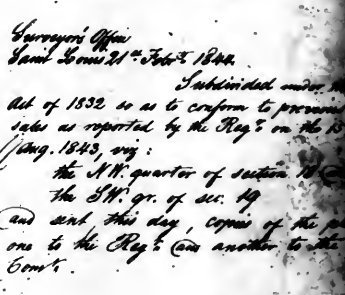 Surveyor's Office
Saint Louis 21st Feb'y. 1844.
Subdivided under
Act of 1832 so as to conform to previous
sales as reported by the Reg'r on the 15
Aug. 1843, viz:
the N.W. quarter of section 18
the S.W. qr. of sec. 19
and sent this day, copies of the
one to the Reg'r and another to the
Com'r.